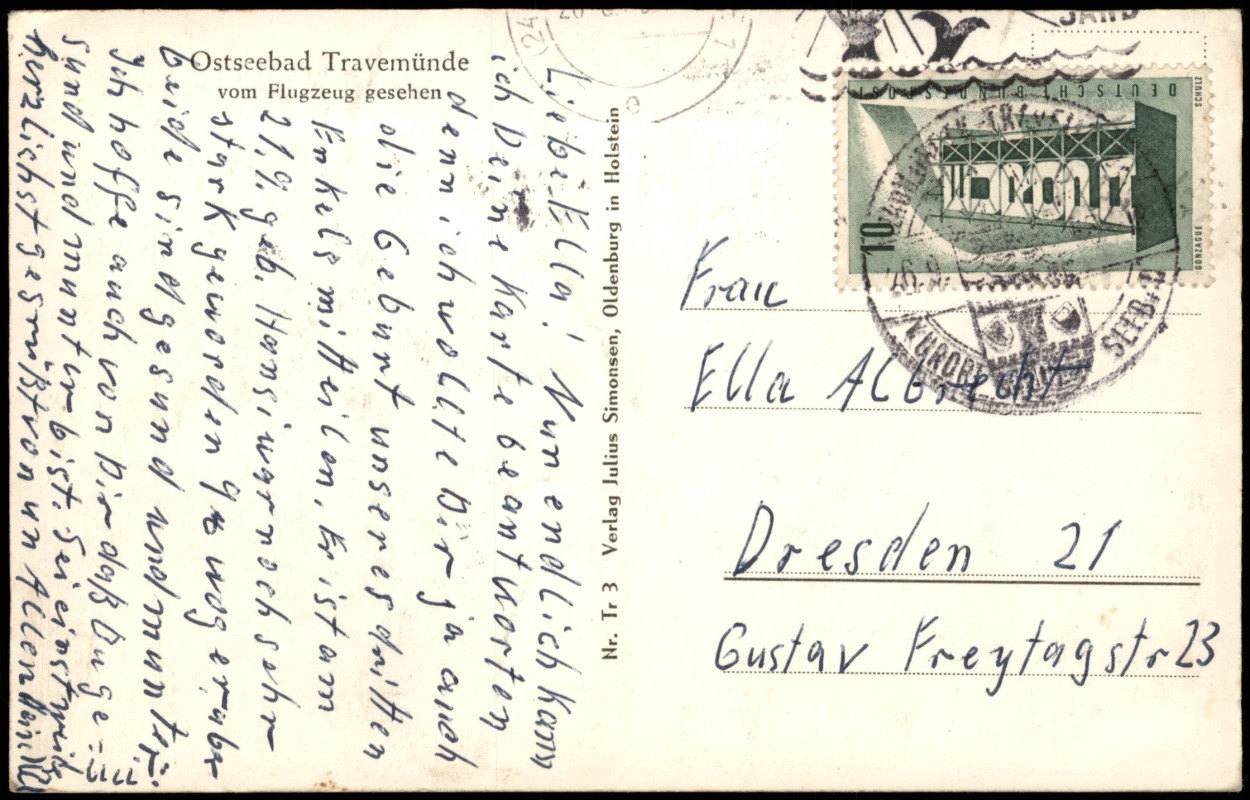 Ostseebad Travemünde
vom Flugzeug gesehen
Liebe Ella! Nun endlich kann
ich Deine Karte beantworten
denn ich wollte Dir ja auch
die Geburt unseres dritten
Enkels mitteilen. Er ist am
geb. Hansi war noch sehr
stark geworden
beide sind gesund und munter.
Ich hoffe auch von Dir daß Du ge=
sund und munter bist. Sei einstweilen
herzlichst gegrüßt von un Allen
Nr. Tr 3 Verlag Julius Simonsen, Oldenburg in Holstein
SAND
DEUTSCHE BUNDESPOST
SCHULZ
EUROPA
10
GONZAGUE
Frau
Ella Albrecht
Dresden 21
Gustav Freytagstr 23